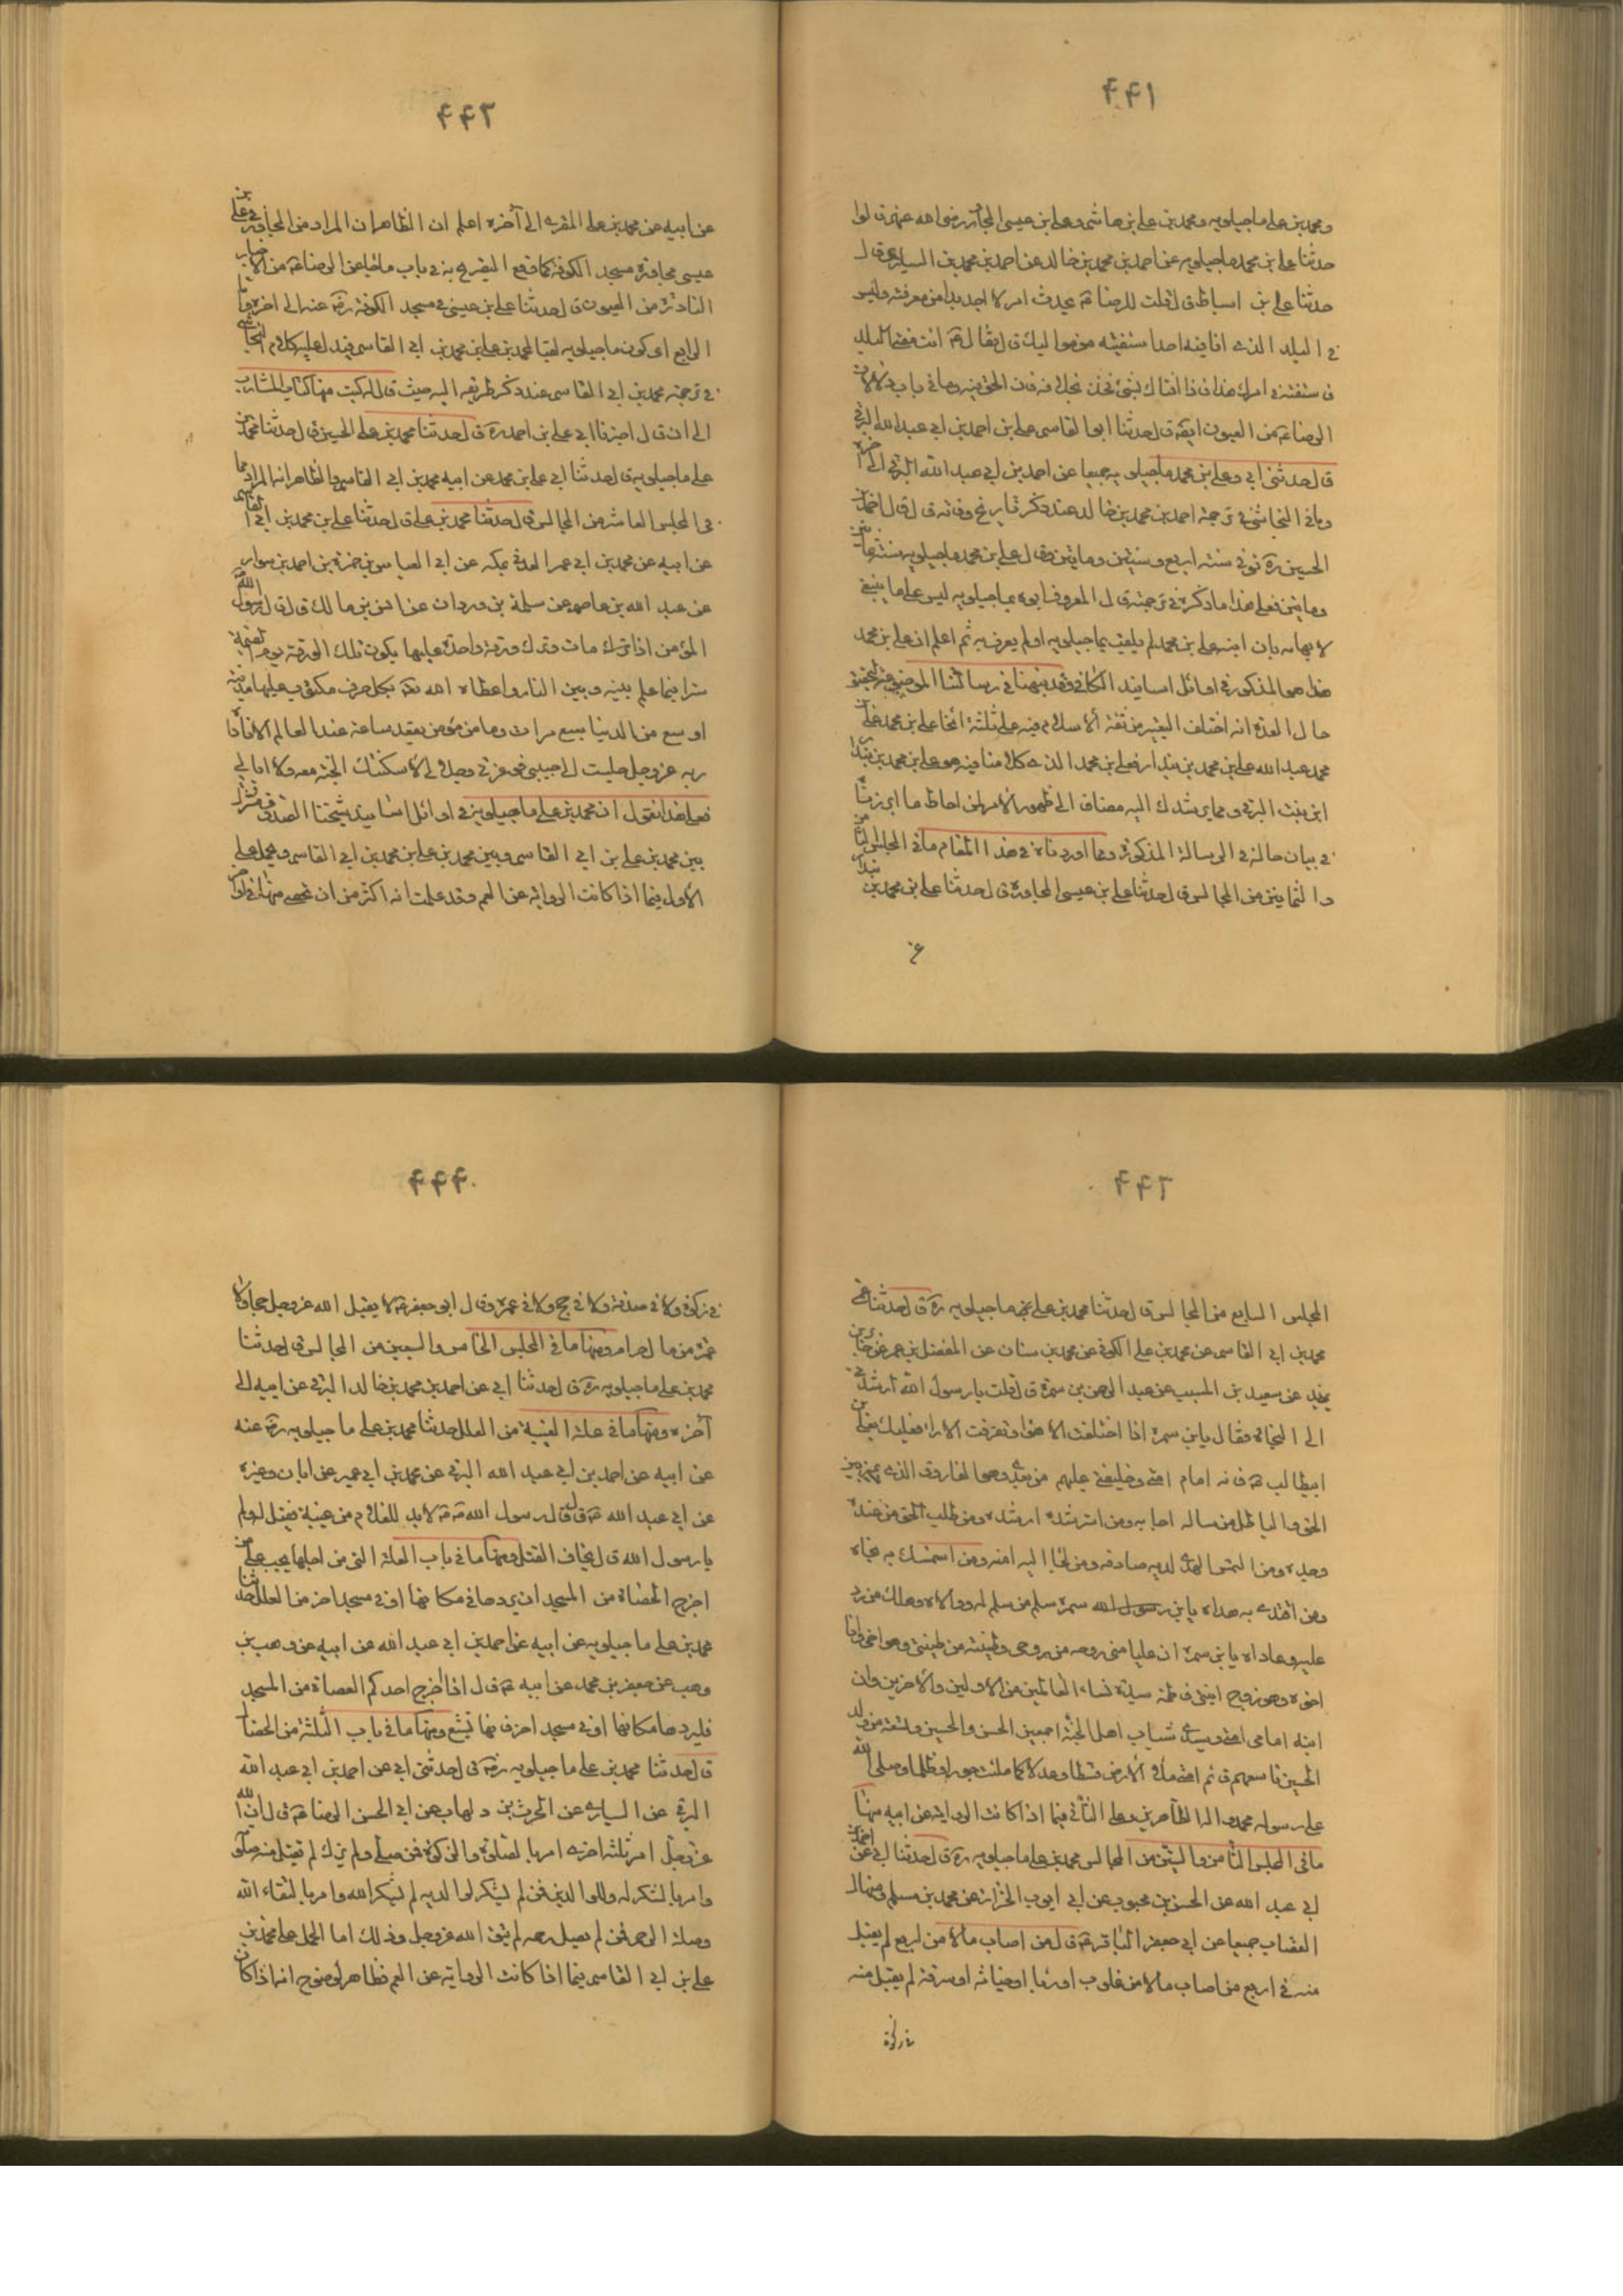 ۴۴۱
ومحمد بن علي ماجيلويه ومحمد بن علي بن هاشم وعلي بن عيسى المجاور رضى الله عنهم قالوا
حدثنا علي بن محمد ماجيلويه عن احمد بن محمد بن خالد عن احمد بن محمد بن السياري قال
حدثنا علي بن اسباط قال قلت للرضا ع يحدث امر لا اجد بدا من معرفته وليس
في البلد الذي انا فيه احد استفتيه من مواليك قال فقال ع ائت فقيه البلد
فاستفته في امرك هذا فاذا افتاك بشئ فخذ بخلافه فان الحق فيه وما في باب دلالات
الرضا ع من العيون ايضا قال حدثنا ابو القاسم علي بن احمد بن ابي عبد الله البرقي
قال حدثني ابي وعلي بن محمد ماجيلويه جميعا عن احمد بن ابي عبد الله البرقي الى آخره
وما في النجاشي في ترجمة احمد بن محمد بن خالد عند ذكر تاريخ وفاته قال قال احمد بن
الحسين ره توفي سنة اربع وسبعين ومايتين وقال علي بن محمد ماجيلويه سنة ثمانين
ومايتين فعلى هذا ما ذكره في ترجمته قال المعروف ابوه بماجيلويه ليس على ما ينبغي
لايهامه بان ابنه علي بن محمد لم يلقب بماجيلويه او لم يعرف به ثم اعلم ان علي بن محمد
هذا هو المذكور في اوائل اسانيد الكافي وقد نبهنا في رسالتنا الموضوعة لتحقيق
حال العدة انه اختلف التعبير من ثقة الاسلام فيه على ثلثة انحاء علي بن محمد علي بن
محمد عبد الله علي بن محمد بن بندار فعلي بن محمد الذي كلامنا فيه هو علي بن محمد بن بندار
ابن بنت البرقي ومما يرشدك اليه مضاف الى ظهور الامر لمن احاط ما ابرزناه
في بيان حاله في الرسالة المذكورة وما اوردناه في هذا المقام ما في المجلس الثامن
والثمانين من المجالس قال حدثنا علي بن عيسى المجاور قال حدثنا علي بن محمد بن بندار
عن
۴۴۲
عن ابيه عن محمد بن علي المقري الى آخره اعلم ان الظاهر ان المراد من المجاور في علي بن
عيسى مجاورة مسجد الكوفة كما وقع التصريح به في باب ما جاء عن الرضا ع من الاخبار
النادرة من العيون قال حدثنا علي بن عيسى في مسجد الكوفة رض عنه الى آخره واما
الرابع اي كون ماجيلويه لقبا لمحمد بن علي بن محمد بن ابي القاسم فيدل عليه كلام النجاشي
في ترجمة محمد بن ابي القاسم عند ذكر طريقه اليه حيث قال له كتب منها كتاب المشارب
الى ان قال اخبرنا ابي علي بن احمد ره قال حدثنا محمد بن علي الحسين قال حدثنا محمد بن
علي ماجيلويه قال حدثنا ابي علي بن محمد عن ابيه محمد بن ابي القاسم والظاهر انه المراد مما
في المجلس العاشر من المجالس قال حدثنا محمد بن علي قال حدثنا علي بن محمد بن ابي القاسم
عن ابيه عن محمد بن ابي عمر العدني بمكة عن ابي العباس بن حمزة بن احمد بن سوار
عن عبد الله بن عاصم عن سلمة بن وردان عن انس بن مالك قال قال رسول الله
المؤمن اذا ترك مات وترك ورقة واحدة عليها يكون تلك الورقة يوم القيمة
سترا فيما علم بينه وبين النار واعطاه الله تعه بكل حرف مكتوب عليها مدينة
اوسع من الدنيا سبع مرات وما من مؤمن يقعد ساعة عند العالم الا ناداه
ربه عز وجل جلست الى حبيبي فوعزتي وجلالي لاسكننك الجنة معه ولا ابالي
فعلى هذا نقول ان محمد بن علي ماجيلويه في اوائل اسانيد شيخنا الصدوق مشترك
بين محمد بن علي بن ابي القاسم وبين محمد بن علي بن محمد بن ابي القاسم ومحمد علي
الاول فيما اذا كانت الرواية عن العم وقد علمت انه اكثر من ان تحصى منها في اواخر
۴۴۳
المجلس السابع من المجالس قال حدثنا محمد بن علي بن ماجيلويه ره قال حدثنا عمي
محمد بن ابي القاسم عن محمد بن علي الكوفي عن محمد بن سنان عن المفضل بن عمر عن جابر بن
يزيد عن سعيد بن المسيب عن عبد الرحمن بن سمرة قال قلت يا رسول الله ارشدني
الى النجاة فقال يابن سمرة اذا اختلفت الاهواء وتفرقت الاراء فعليك بعلي بن
ابيطالب ع فانه امام امتي وخليفتي عليهم من بعدي وهو الفاروق الذي يميز بين
الحق والباطل من ساله اجابه ومن استرشده ارشده ومن طلب الحق من عنده
وجده ومن التمس الهدى لديه صادفه ومن لجأ اليه امنه ومن استمسك به نجاه
ومن اقتدى به هداه يابن رسول الله سمرة سلم من سلم له ووالاه وهلك من رد
عليه وعاداه يابن سمرة ان عليا مني روحه من روحي وطينته من طينتي وهو اخي وانا
اخوه وهو زوج ابنتي فاطمة سيدة نساء العالمين من الاولين والاخرين وان
ابنيه امامي امتي وسيدي شباب اهل الجنة اجمعين الحسن والحسين وتسعة من ولد
الحسين تاسعهم قائم امتي يملأ الارض قسطا وعدلا كما ملئت جورا وظلما وصلى الله
على رسوله محمد واله الطاهرين وعلى الثاني فيما اذا كانت الرواية عن ابيه منها
ما في المجلس الثامن والستين من المجالس محمد بن علي ماجيلويه ره قال حدثنا ابي عن احمد بن
ابي عبد الله عن الحسن بن محبوب عن ابي ايوب الخزاز عن محمد بن مسلم ومنهال
القصاب جميعا عن ابي جعفر الباقر ع قال من اصاب مالا من اربع لم يقبل
منه في اربع من اصاب مالا من غلول او ربا او خيانة او سرقة لم يقبل منه
في زكوة
۴۴۴
في زكوة ولا في صدقة ولا في حج ولا في عمرة وقال ابو جعفر ع لا يقبل الله عز وجل حجا ولا
عمرة من مال حرام ومنها ما في المجلس الخامس والسبعين من المجالس قال حدثنا
محمد بن علي ماجيلويه ره قال حدثنا ابي عن احمد بن محمد بن خالد البرقي عن ابيه الى
آخره ومنها ما في علة الغيبة من العلل حدثنا محمد بن علي ماجيلويه رض عنه
عن ابيه عن احمد بن ابي عبد الله البرقي عن محمد بن ابي عمير عن ابان وغيره
عن ابي عبد الله ع قال قال رسول الله ص لا بد للغلام من غيبة فقيل له ولم
يا رسول الله قال يخاف القتل ومنها ما في باب العلة التي من اجلها يجب على من
اخرج الحصاة من المسجد ان يردها في مكانها او في مسجد اخر من العلل حدثنا
محمد بن علي ماجيلويه عن ابيه عن احمد بن ابي عبد الله عن ابيه عن وهب بن
وهب عن جعفر بن محمد عن ابيه ع قال اذا اخرج احدكم الحصاة من المسجد
فليردها مكانها او في مسجد اخر فانها تسبح ومنها ما في باب الثلثة من الخصال
قال حدثنا محمد بن علي ماجيلويه رض قال حدثني ابي عن احمد بن ابي عبد الله
البرقي عن السياري عن الحرث بن دلهاب عن ابي الحسن الرضا ع قال ان الله
عز وجل امر بثلثة اخرى امر بالصلوة والزكوة فمن صلى ولم يزك لم تقبل منه صلوته
وامر بالشكر له وللوالدين فمن لم يشكر لوالديه لم يشكر الله وامر باتقاء الله
وصلة الرحم فمن لم يصل رحمه لم يتق الله عز وجل وذلك اما الحمل على محمد بن
علي بن ابي القاسم فيما اذا كانت الرواية عن العم فظاهر لوضوح انه اذا كان